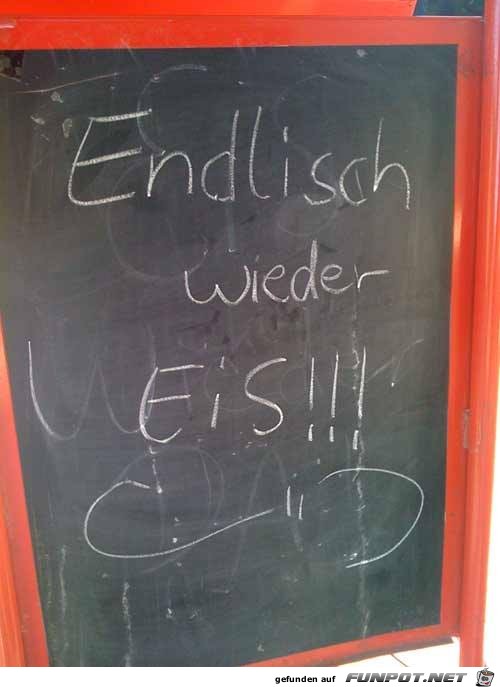 Endlisch
wieder
EiS!!!
gefunden auf FUNPOT.NET